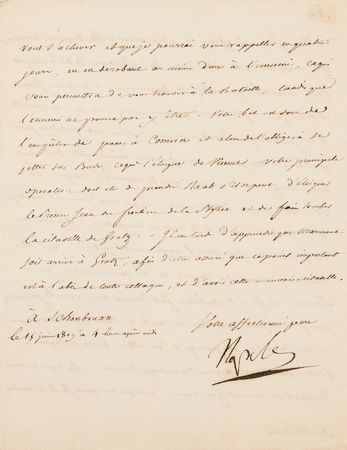 vous achever et que je pourrai vous rappeller en quatre
jours, en en dérobant au moins deux à l'ennemi, ce qui
vous permettra de vous trouver à la bataille, tandis que
l'ennemi ne pourra pas y être. Votre but est donc de
l'empêcher de passer à Comorn et alors de l'obliger à se
jetter sur Bude, ce qui l'éloigne de Vienne. Votre principale
opération doit être de prendre Raab s'il se peut, d'éloigner
le Prince Jean de la et de faire tomber
la citadelle de Gratz. - Il me tarde d'apprendre que Marmont
soit arrivé à Gratz, afin d'être assuré que ce point important
est à l'abri de toute attaque, et d'avoir cette mauvaise citadelle.
à Schonbrunn
le 15 juin 1809 à 4 heures après midi
Votre affectionné père
Napole